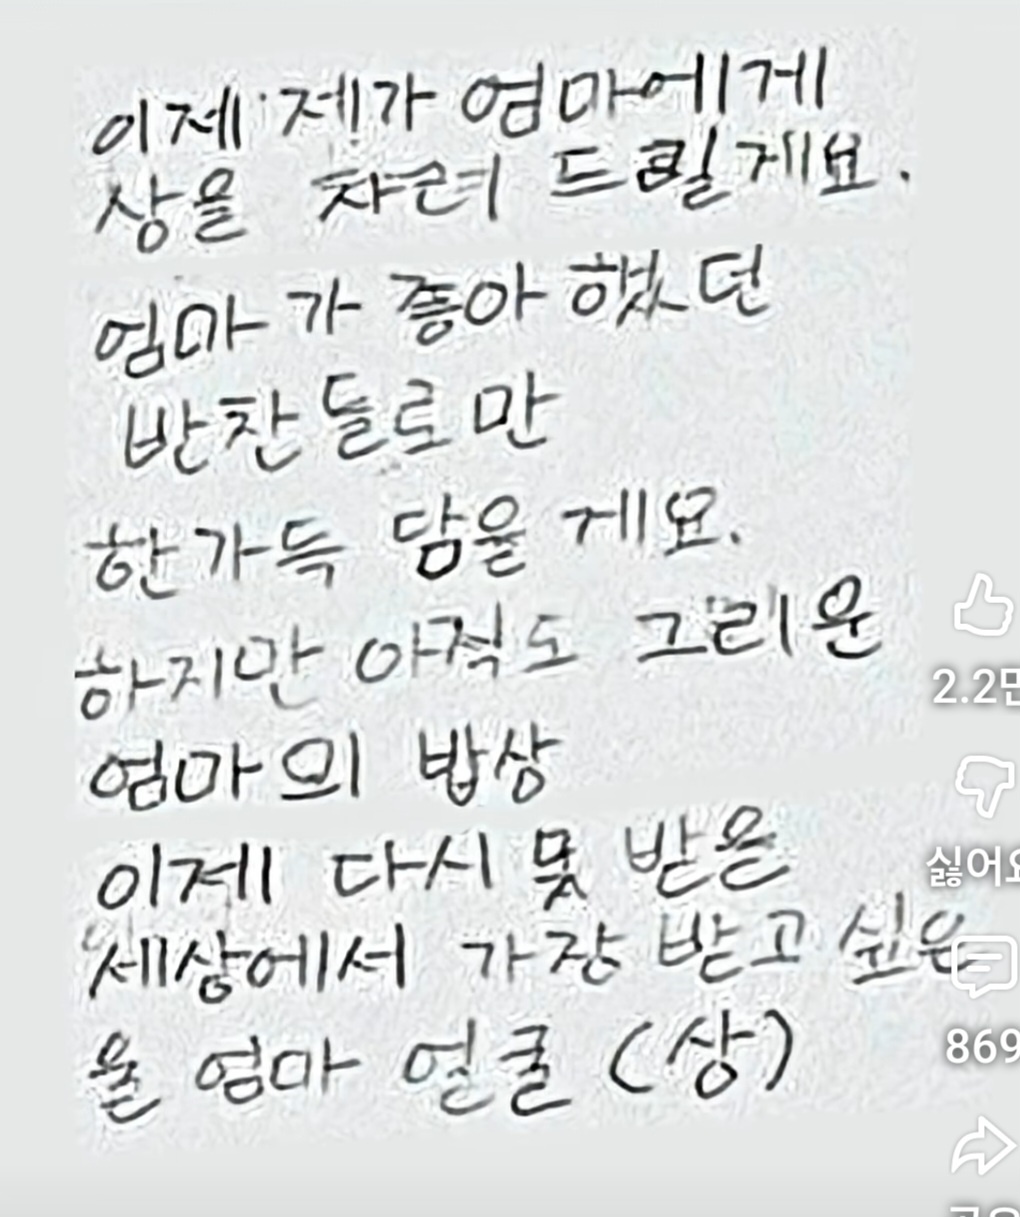 이제 제가 엄마에게
상을 차려 드릴게요.
엄마가 좋아했던
반찬들로만
한가득 담을게요.
하지만 아직도 그리운
엄마의 밥상
이제 다시 못 받을
세상에서 가장 받고 싶은
울 엄마 얼굴 (상)
2.2만
싫어요
869